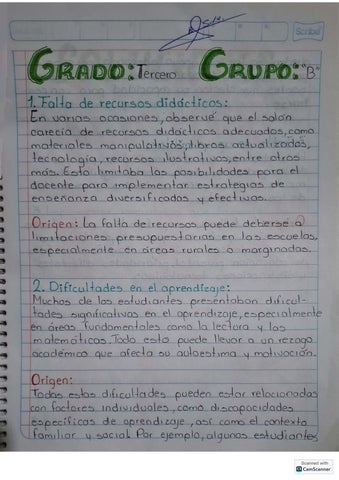 Scribe
GRADO: Tercero GRUPO: "B"
1. Falta de recursos didácticos:
En varias ocasiones, observé que el salón
carecía de recursos didácticos adecuados, como
materiales manipulativos, libros actualizados,
tecnología, recursos ilustrativos, entre otros
más. Esto limitaba las posibilidades para el
docente para implementar estrategias de
enseñanza diversificadas y efectivas.
Origen: La falta de recursos puede deberse a
limitaciones presupuestarias en las escuelas,
especialmente en áreas rurales o marginadas.
2. Dificultades en el aprendizaje:
Muchos de los estudiantes presentaban dificul-
tades significativas en el aprendizaje, especialmente
en áreas fundamentales como la lectura y las
matemáticas. Todo esto puede llevar a un rezago
académico que afecta su autoestima y motivación.
Origen:
Todas estas dificultades pueden estar relacionadas
con factores individuales, como discapacidades
específicas de aprendizaje, así como el contexto
familiar y social. Por ejemplo, algunos estudiantes
Scanned with
CamScanner